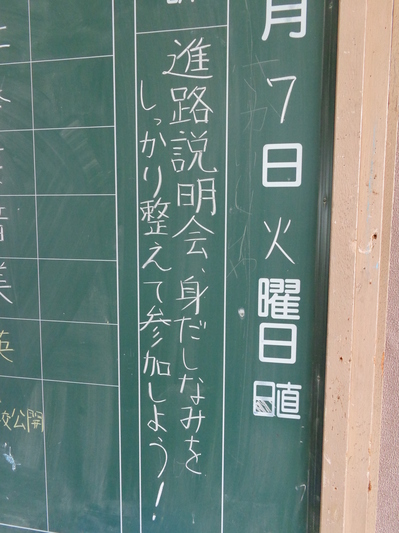 月7日火曜日
日直
進路説明会、身だしなみを
しっかり整えて参加しよう!
英
校公開